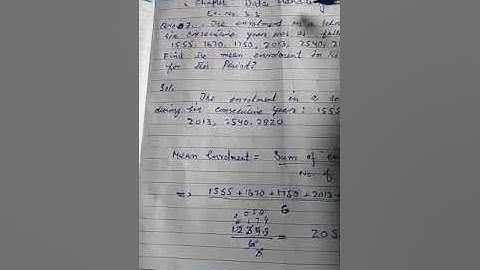 Chapter Data Handling
Ex. No. 3.3
Ques 7. The enrolment in a
six consecutive years was as
1555, 1670, 1750, 2013, 2540, 2
Find the mean enrolment in
for this Period?
Sol.
The enrolment in a
during six consecutive year: 1555
2013, 2540, 2820
Mean Enrolment = Sum of
No. of
⇒, 1555 + 1670 + 1750 + 2013 +
6
= 205